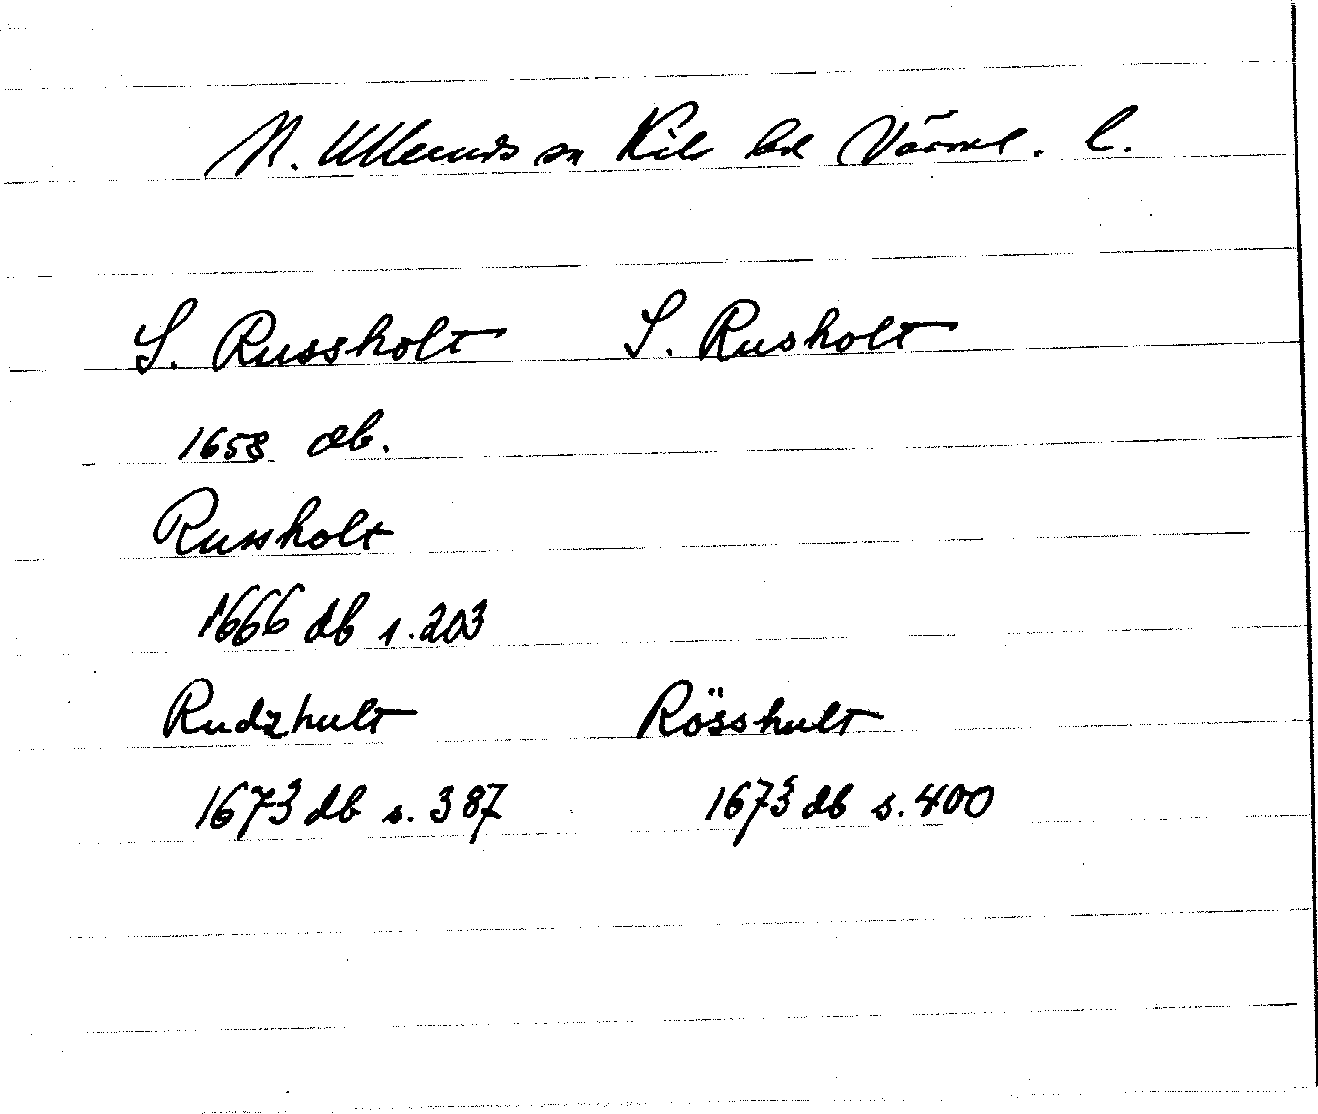 N. Ulleruds sn Kils hd Värml. l.
S. Russholt S. Rusholt
1658 db.
Russholt
1666 db s. 203
Rudzhult Rösshult
1673 db s. 387 1673 db s. 400